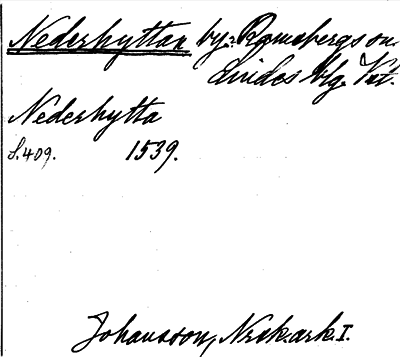 Nederhyttan by, Ramsbergs sn.
Lindes blg. Vst.
Nederhytta
S.409. 1539.
Johansson, Nrsk.ark.I.